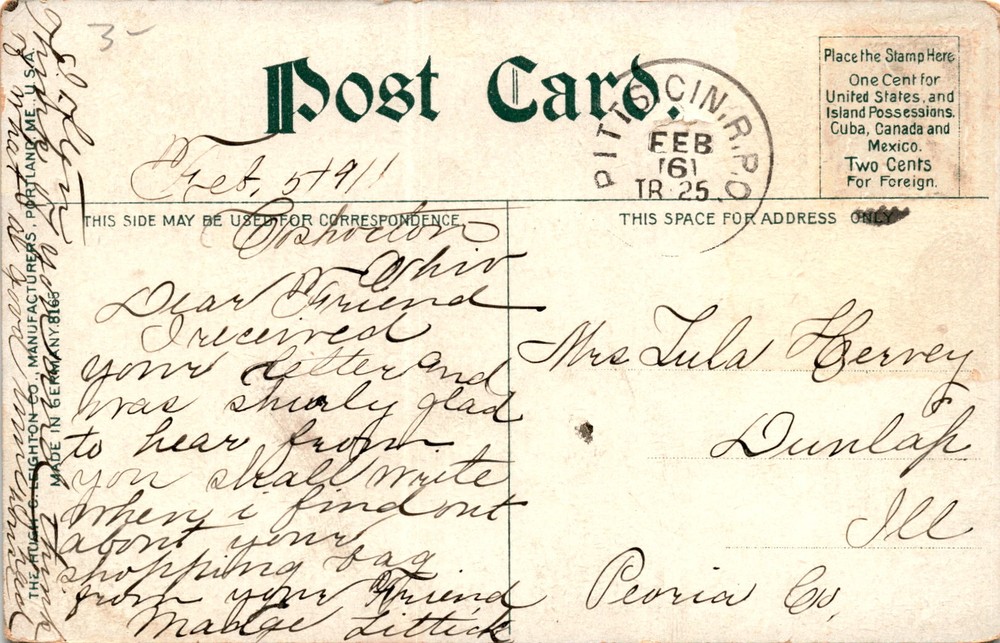 3-
Post Card.
PITTS. CIN. R.P.O.
FEB
6
TR. 25.
Place the Stamp Here
One Cent for
United States, and
Island Possessions.
Cuba, Canada and
Mexico.
Two Cents
For Foreign.
Feb, 5 1911
THIS SIDE MAY BE USED FOR CORRESPONDENCE.
THIS SPACE FOR ADDRESS ONLY
Coshocton
Ohio
Dear Friend
I received
your letter and
was shurly glad
to hear from
you shall write
when i find out
about your
shopping bag
from your Friend
Madge Littick
Mrs Lula Hervey
Dunlap
Ill
Peoria Co.
THE HUGH C. LEIGHTON CO., MANUFACTURERS, PORTLAND, ME., U.S.A.
MADE IN GERMANY. 8165